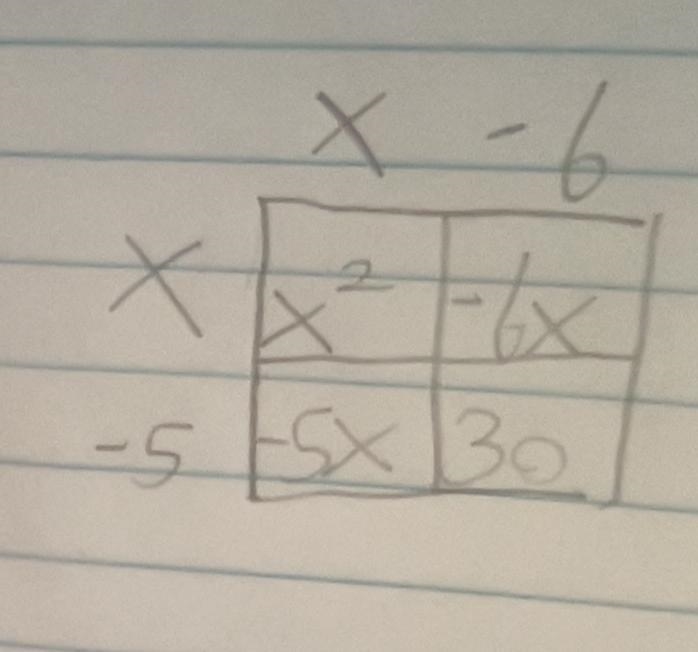 x -6
x x² -6x
-5 -5x 30